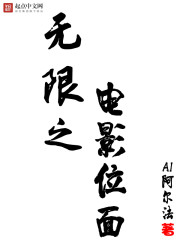 起点中文网
无限之
电影位面
AI阿尔法 著